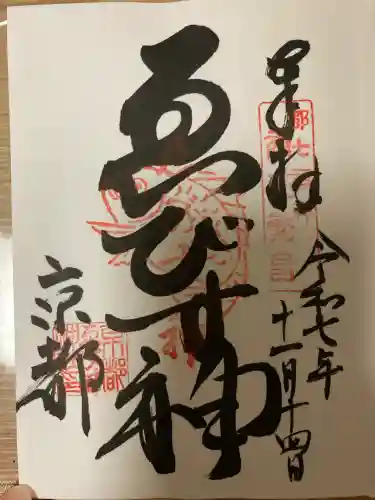 奉拝
令和七年
十一月十四日
ゑびす神
京都